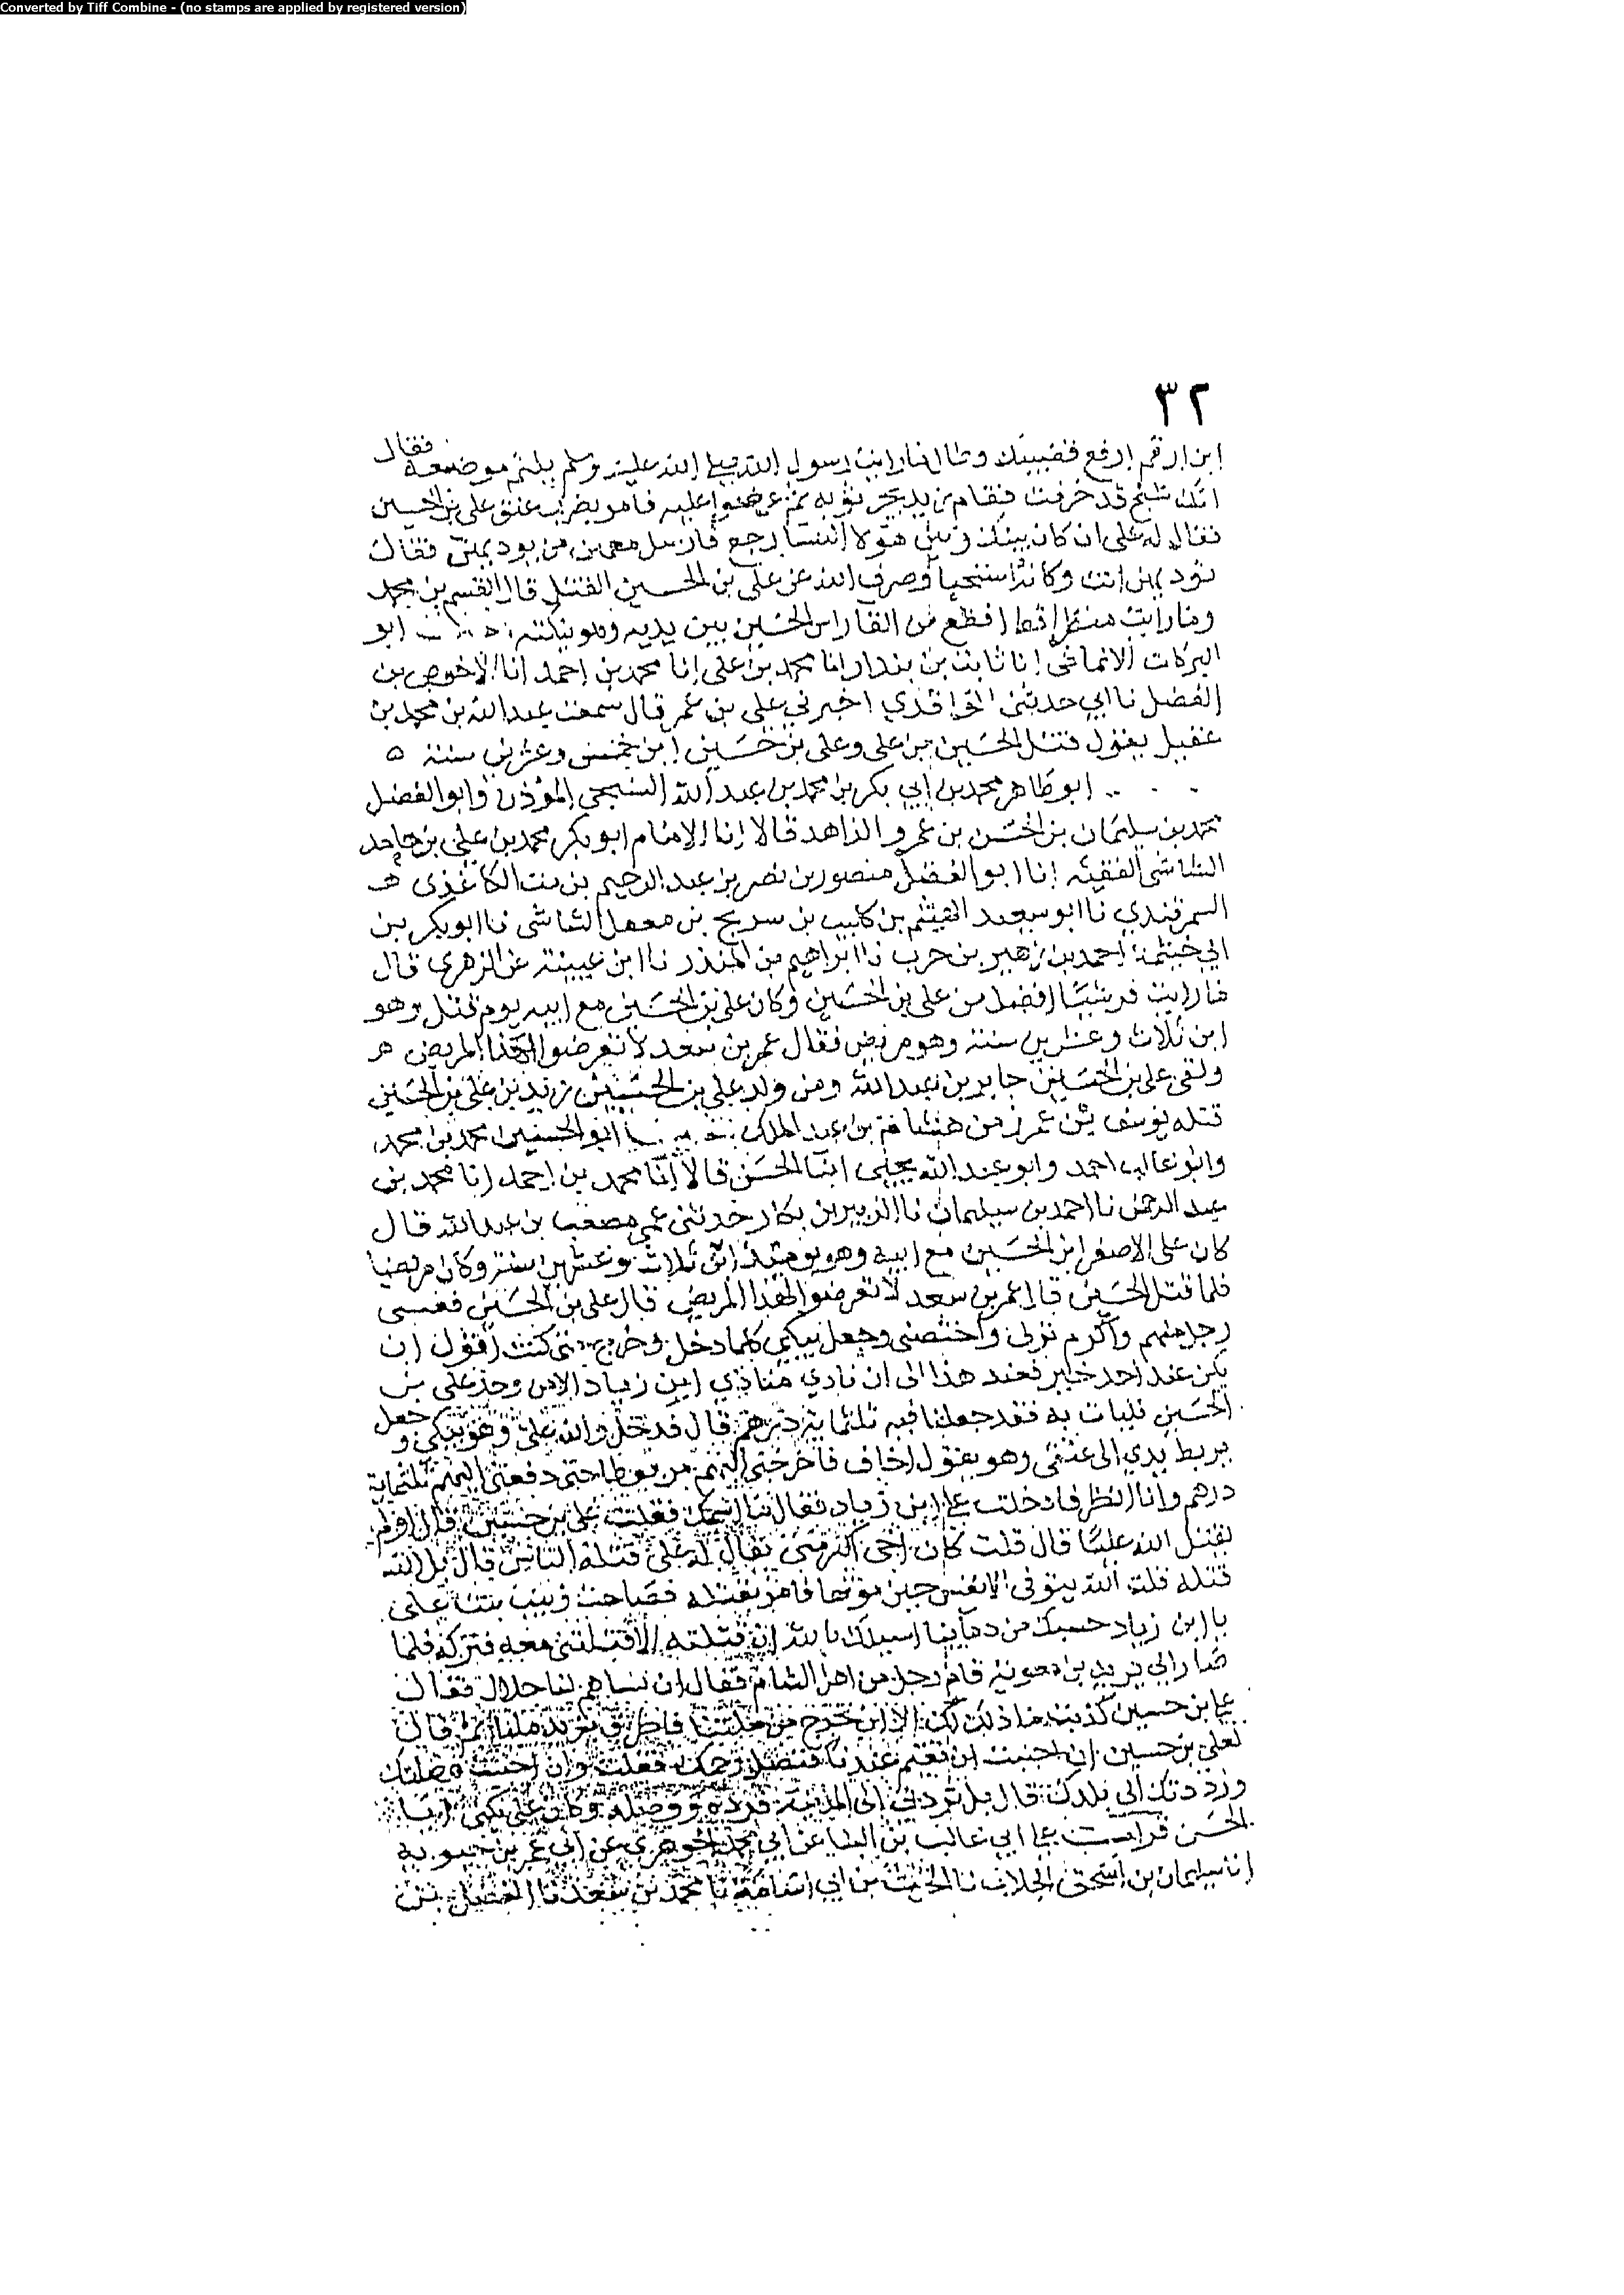 Converted by Tiff Combine - (no stamps are applied by registered version)
٣٢
ابن ارقم ارفع قضيبك وقال لنا رايت رسول الله صلى الله عليه وسلم يلثم موضعه فقال
انك شيخ قد خرفت فقام زيد يجر ثوبه ثم عرضوا عليه فامر بضرب عنق علي بن الحسين
فقال له علي ان كان بينك وبين هولا النسا رجم فارسل معهن من يود بهن فقال
تود بهن انت وكانه استحيا وصرف الله عن علي بن الحسين القتل قال القسم بن محمد
وما رايت منظرا قط افظع من القا راس الحسين بين يديه وهو ينكته ابو
البركات الانماطي انا ثابت بن بندار انا محمد بن علي انا محمد بن احمد انا الاخوص بن
الفضل نا ابي حدثني الواقدي اخبرني علي بن عمر قال سمعت عبد الله بن محمد بن
عقيل يقول قتل الحسين بن علي وعلي بن حسين ابن خمس وعشرين سنة ه
ابو طاهر محمد بن ابي بكر بن محمد بن عبد الله السنجي المؤذن وابو الفضل
محمد بن سليمان بن الحسن بن عمرو الزاهد قالا انا الامام ابو بكر محمد بن علي بن حامد
الشاشي الفقيه انا ابو الفضل منصور بن نصر بن عبد الرحيم بن بنت الكاغذي هـ
السمرقندي نا ابو سعيد الهيثم بن كليب بن سريج بن معقل الشاشي نا ابو بكر بن
ابي خيثمة احمد بن زهير بن حرب نا ابراهيم بن المنذر نا ابن عيينة عن الزهري قال
ما رايت قرشيا افضل من علي بن الحسين وكان علي بن الحسين مع ابيه يوم قتل وهو
ابن ثلاث وعشرين سنة وهو مريض فقال عمر بن سعد لا تعرضوا لهذا المريض هـ
ولقي علي بن الحسين جابر بن عبد الله ومن ولد علي بن الحسين زيد بن علي بن الحسين
قتله يوسف بن عمر زمن هشام بن عبد الملك ابو الحسين محمد بن محمد
وابو غالب احمد وابو عبد الله يحيى ابنا الحسن قالا انا محمد بن احمد انا محمد بن
عبد الرحمن نا احمد بن سليمان نا الزبير بن بكار حدثني عمي مصعب بن عبد الله قال
كان علي الاصغر ابن الحسين مع ابيه وهو يومئذ ابن ثلاث وعشرين سنة وكان مريضا
فلما قتل الحسين قال عمر بن سعد لا تعرضوا لهذا المريض قال علي بن الحسين فغيبني
رجل منهم واكرم نزلي واختصني وجعل يبكي كلما دخل وخرج كنت اقول ان
يكن عند احد خير فعند هذا الى ان نادي منادي ابن زياد الا من وجد علي بن
الحسين فليات به فقد جعلنا فيه ثلثماية درهم قال فدخل والله علي وهو يبكي وجعل
يربط يدي الى عنقي وهو يقول اخاف فاخرجني اليهم مربوطا حتى دفعني اليهم ثلثماية
درهم وانا انظر فادخلت على ابن زياد فقال ما اسمك فقلت علي بن حسين قال اولم
يقتل الله عليا قال قلت كان اخي اكبر مني يقال له علي قتله الناس قال بل الله
قتله قلت الله يتوفى الانفس حين موتها فامر بقتله فصاحت زينب بنت علي
يا ابن زياد حسبك من دماينا اسيلك بالله ان قتلته الا قتلتني معه فتركه فلما
صار الى يزيد بن معوية قام رجل من اهل الشام فقال ان نساهم لنا حلال فقال
علي بن حسين كذبت ما ذلك لك الا ان تخرج من ملتنا فاطرق يزيد مليا ثم قال
لعلي بن حسين ان احببت ان تقيم عندنا فنصل رحمك فعلت وان احببت وصلتك
ورددتك الى بلدك قال بل تردني الى المدينة فرده ووصله وكان علي يكنى ابا
الحسن قرات على ابي غالب بن البنا عن ابي محمد الجوهري عن ابي عمر بن حيويه
انا سليمان بن اسحق الجلاب نا الحارث بن ابي اسامة نا محمد بن سعد نا الفضل بن